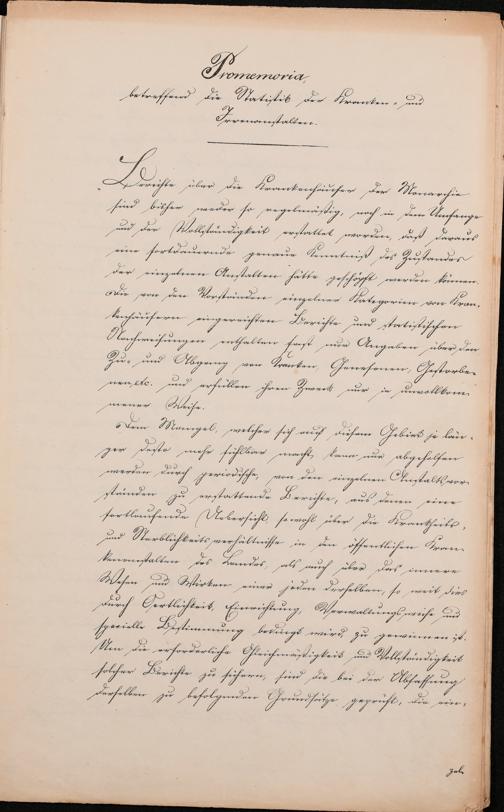 Promemoria,
betreffend die Statistik der Kranken- und
Irrenanstalten.
Berichte über die Krankenhäuser der Monarchie
sind bisher weder so regelmäßig, noch in dem Umfange
und der Vollständigkeit erstattet worden, daß daraus
eine fortdauernde genaue Kenntniß des Zustandes
der einzelnen Anstalten hätte geschöpft werden können.
Die von den Vorständen einzelner Kategorien von Kran-
kenhäusern eingereichten Berichte und statistischen
Nachweisungen enthalten fast nur Angaben über den
Zu- und Abgang von Kranken, Genesenen, Gestorbe-
nen, etc. und erfüllen ihren Zweck nur in unvollkom-
mener Weise.
Dem Mangel, welcher sich auf diesem Gebiet je län-
ger desto mehr fühlbar macht, kann nur abgeholfen
werden durch periodische, von den einzelnen Anstaltsvor-
ständen zu erstattende Berichte, aus denen eine
fortlaufende Uebersicht sowohl über die Krankheits-
und Sterblichkeitsverhältnisse in den öffentlichen Kran-
kenanstalten des Landes, als auch über das innere
Wesen und Wirken eines jeden derselben, so weit dies
durch Oertlichkeit, Einrichtung, Verwaltungsweise und
specielle Bestimmung bedingt wird, zu gewinnen ist.
Um die erforderliche Gleichmäßigkeit und Vollständigkeit
solcher Berichte zu sichern, sind die bei der Abfassung
derselben zu befolgenden Grundsätze geprüft, die ein-
zel-